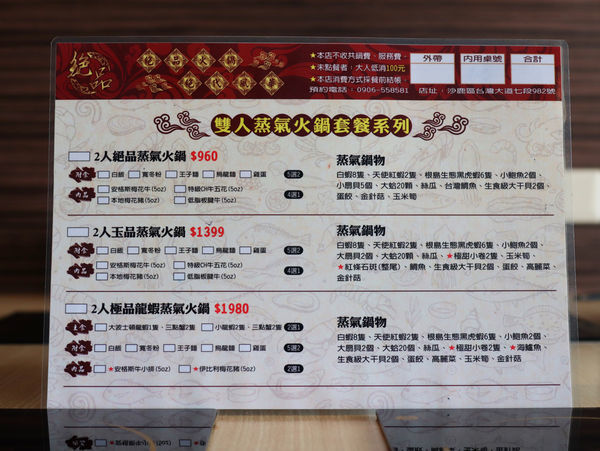 絕品
絕品火鍋
絕代風華
★本店不收共鍋費、服務費。
★未點餐者：大人低消100元
★本店消費方式採餐前結帳。
預約電話：0906-558581 店址：沙鹿區台灣大道七段982號
外帶 內用桌號 合計
雙人蒸氣火鍋套餐系列
2人絕品蒸氣火鍋 $960
附食 白飯 寬冬粉 王子麵 烏龍麵 雞蛋 5選2
肉品 安格斯梅花牛(5oz) 特級CH牛五花(5oz) 4選1
本地梅花豬(5oz) 低脂板腱牛(5oz)
蒸氣鍋物
白蝦8隻、天使紅蝦2隻、根島生態黑虎蝦6隻、小鮑魚2個、
小扇貝5個、大蛤20顆、絲瓜、台灣鯛魚、生食級大干貝2個、
蛋餃、金針菇、玉米筍
2人玉品蒸氣火鍋 $1399
附食 白飯 寬冬粉 王子麵 烏龍麵 雞蛋 5選2
肉品 安格斯梅花牛(5oz) 特級CH牛五花(5oz) 4選1
本地梅花豬(5oz) 低脂板腱牛(5oz)
蒸氣鍋物
白蝦8隻、天使紅蝦2隻、根島生態黑虎蝦6隻、小鮑魚2個、
大扇貝2個、大蛤20顆、絲瓜、★極甜小卷2隻、玉米筍、
★紅條石斑(整尾)、鯛魚、生食級大干貝2個、蛋餃、高麗菜、
金針菇
2人極品龍蝦蒸氣火鍋 $1980
主食 大波士頓龍蝦1隻、三點蟹2隻 小龍蝦2隻、三點蟹2隻 2選1
附食 白飯 寬冬粉 王子麵 烏龍麵 雞蛋 5選2
肉品 ★安格斯牛小排(5oz) ★伊比利梅花豬(5oz) 2選1
蒸氣鍋物
白蝦8隻、天使紅蝦2隻、根島生態黑虎蝦6隻、小鮑魚2個、
大扇貝2個、大蛤20個、絲瓜、★極甜小卷2隻、★海鱺魚、
生食級大干貝2個、蛋餃、高麗菜、玉米筍、金針菇